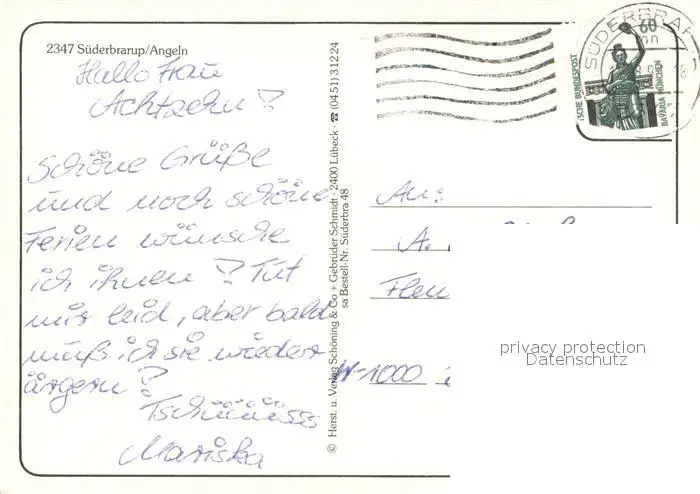 2347 Süderbrarup/Angeln
Hallo Frau
Achtzehn !
Schöne Grüße
und noch schöne
Ferien wünsche
ich ihnen ! Tut
mir leid, aber bald
muß ich sie wieder
ärgern !
Tschüüüss
Mariska
© Herst. u. Verlag Schöning & Co + Gebrüder Schmidt · 2400 Lübeck · ☎ (0451) 31224
sa Bestell-Nr. Süderbra 48
SÜDERBRARUP
60
DEUTSCHE BUNDESPOST
BAVARIA MÜNCHEN
An:
A.
W-1000
privacy protection
Datenschutz